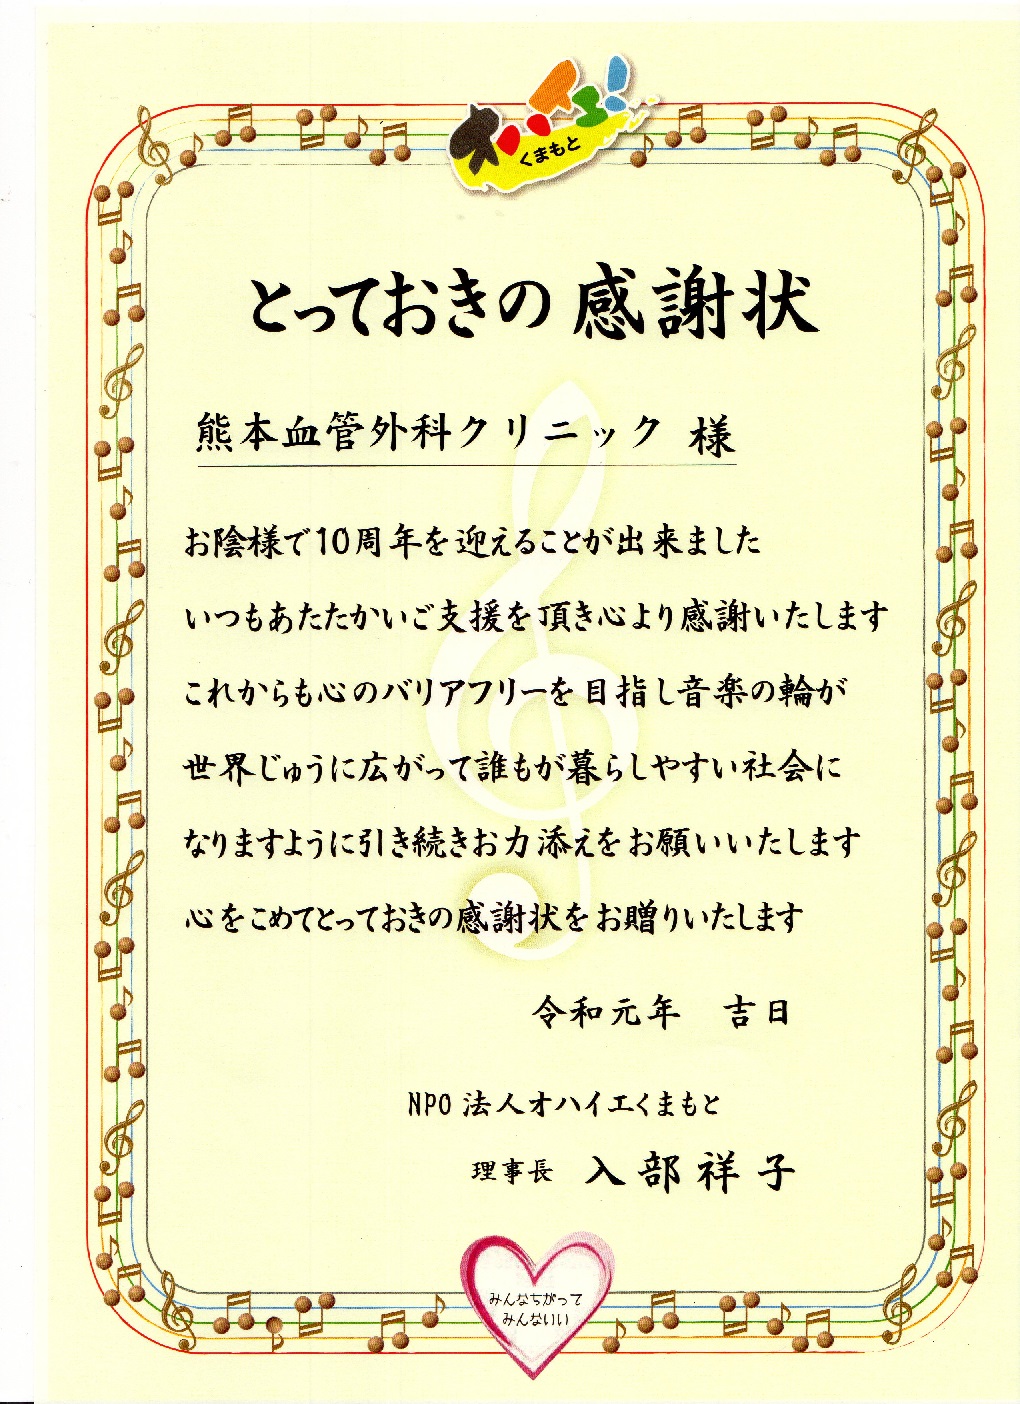 オハイエ!
くまもと
とっておきの感謝状
熊本血管外科クリニック 様
お陰様で10周年を迎えることが出来ました
いつもあたたかいご支援を頂き心より感謝いたします
これからも心のバリアフリーを目指し音楽の輪が
世界じゅうに広がって誰もが暮らしやすい社会に
なりますように引き続きお力添えをお願いいたします
心をこめてとっておきの感謝状をお贈りいたします
令和元年 吉日
NPO 法人オハイエくまもと
理事長 入部祥子
みんなちがって
みんないい